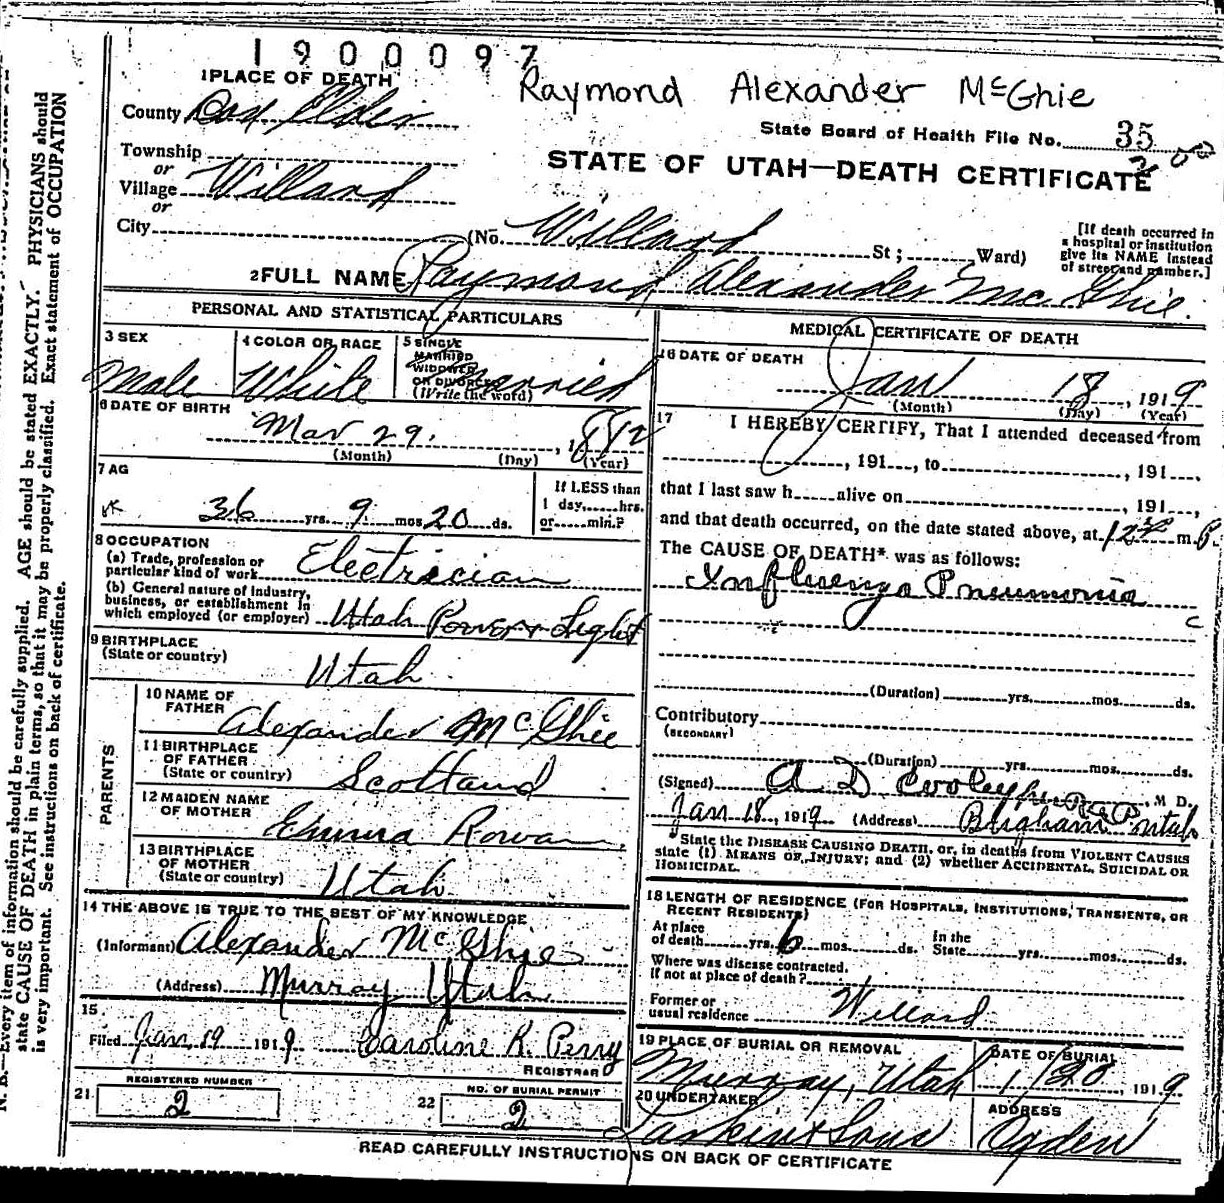 1900097
1 PLACE OF DEATH
Raymond Alexander McGhie
County Box Elder
State Board of Health File No. 35
STATE OF UTAH—DEATH CERTIFICATE
Township
or
Village Willard
or
City (No. Willard St; Ward)
[If death occurred in
a hospital or institution
give its NAME instead
of street and number.]
2 FULL NAME Raymond Alexander McGhie.
PERSONAL AND STATISTICAL PARTICULARS
3 SEX
Male
4 COLOR OR RACE
White
5 SINGLE
MARRIED
WIDOWED
OR DIVORCED
(Write the word)
Married
6 DATE OF BIRTH
Mar 29, 1882
(Month) (Day) (Year)
7 AG
36 yrs. 9 mos 20 ds.
If LESS than
1 day, hrs.
or min.?
8 OCCUPATION
(a) Trade, profession or
particular kind of work Electrician
(b) General nature of industry,
business, or establishment in
which employed (or employer) Utah Power & Light
9 BIRTHPLACE
(State or country)
Utah
PARENTS
10 NAME OF
FATHER
Alexander McGhie
11 BIRTHPLACE
OF FATHER
(State or country) Scotland
12 MAIDEN NAME
OF MOTHER
Emma Rowan
13 BIRTHPLACE
OF MOTHER
(State or country) Utah
14 THE ABOVE IS TRUE TO THE BEST OF MY KNOWLEDGE
(Informant) Alexander McGhie
(Address) Murray Utah
15
Filed Jan 19 1919 Caroline K. Perry
REGISTRAR
REGISTERED NUMBER
21 2
NO. OF BURIAL PERMIT
22 2
MEDICAL CERTIFICATE OF DEATH
16 DATE OF DEATH
Jan 18, 1919
(Month) (Day) (Year)
17 I HEREBY CERTIFY, That I attended deceased from
, 191 , to , 191 .
that I last saw h alive on , 191 ,
and that death occurred, on the date stated above, at m.
The CAUSE OF DEATH* was as follows:
Influenza Pneumonia
(Duration) yrs. mos. ds.
Contributory
(SECONDARY)
(Duration) yrs. mos. ds.
(Signed) A D Cooley M D.
Jan 18, 1919 (Address) Brigham Utah
*State the DISEASE CAUSING DEATH, or, in deaths from VIOLENT CAUSES
state (1) MEANS OF INJURY; and (2) whether ACCIDENTAL, SUICIDAL OR
HOMICIDAL.
18 LENGTH OF RESIDENCE (FOR HOSPITALS, INSTITUTIONS, TRANSIENTS, OR
RECENT RESIDENTS)
At place
of death yrs. 6 mos. ds. In the
State yrs. mos. ds.
Where was disease contracted.
If not at place of death?
Former or
usual residence Willard
19 PLACE OF BURIAL OR REMOVAL
Murray, Utah
DATE OF BURIAL
1/20 1919
20 UNDERTAKER
Larkin & Sons
ADDRESS
Ogden
READ CAREFULLY INSTRUCTIONS ON BACK OF CERTIFICATE
N. B.—Every item of information should be carefully supplied. AGE should be stated EXACTLY. PHYSICIANS should
state CAUSE OF DEATH in plain terms, so that it may be properly classified. Exact statement of OCCUPATION
is very important. See instructions on back of certificate.